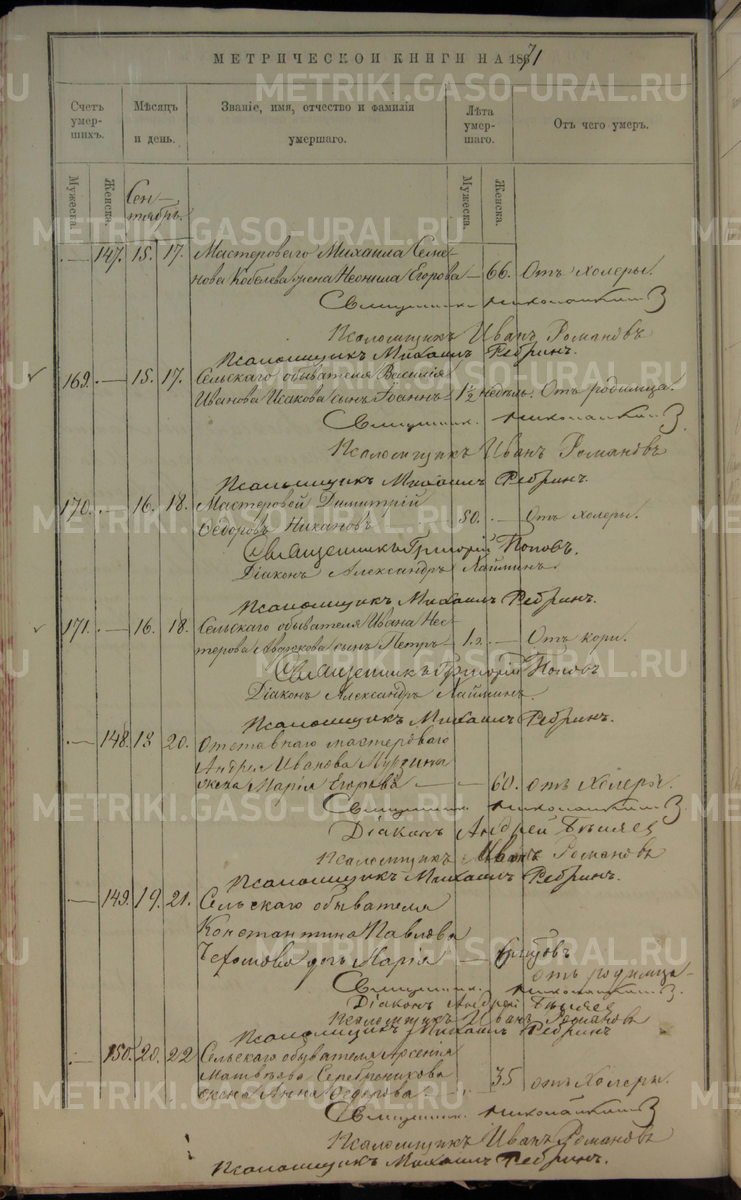 МЕТРИЧЕСКОЙ КНИГИ НА 1871
Счетъ умер-шихъ. Мѣсяцъ и день. Званіе, имя, отчество и фамилія умершаго. Лѣта умер-шаго. Отъ чего умеръ.
Мужеска. Женска. Мужеска. Женска.
Сен-
тябрь.
147. 15. 17. Мастероваго Михаила Семе-
нова Кобелева жена Неонила Егорова 66. Отъ холеры.
Священникъ
Псаломщикъ Иванъ Романовъ
Псаломщикъ Михаилъ Ребринъ.
169. 15. 17. Сельскаго обывателя Василія
Иванова Исакова сынъ Іоаннъ 1½ недѣль. Отъ родимца.
Священникъ
Псаломщикъ Иванъ Романовъ
Псаломщикъ Михаилъ Ребринъ.
170. 16. 18. Мастеровой Димитрій
Ѳедоровъ 50. Отъ холеры.
Священникъ Григорій Поповъ.
Діаконъ Александръ
Псаломщикъ Михаилъ Ребринъ.
171. 16. 18. Сельскаго обывателя Ивана Нес-
терова сынъ Петръ 1. Отъ кори.
Священникъ Григорій Поповъ
Діаконъ Александръ
Псаломщикъ Михаилъ Ребринъ.
148. 13 20. Отставнаго мастероваго
Андрея Иванова Мурзина
жена Марія Егорова 60. отъ холеры.
Священникъ
Діаконъ Андрей
Псаломщикъ Иванъ Романовъ
Псаломщикъ Михаилъ Ребринъ.
149. 19. 21. Сельскаго обывателя
Константина Павлова
дочь Марія
отъ родимца
Священникъ
Діаконъ Андрей
Псаломщикъ Иванъ Романовъ
Псаломщикъ Михаилъ Ребринъ
150. 20. 22 Сельскаго обывателя Арсенія
Матвѣева Серебреникова
жена Анна Ѳедорова. 35 отъ холеры.
Священникъ
Псаломщикъ Иванъ Романовъ
Псаломщикъ Михаилъ Ребринъ.
METRIKI.GASO-URAL.RU